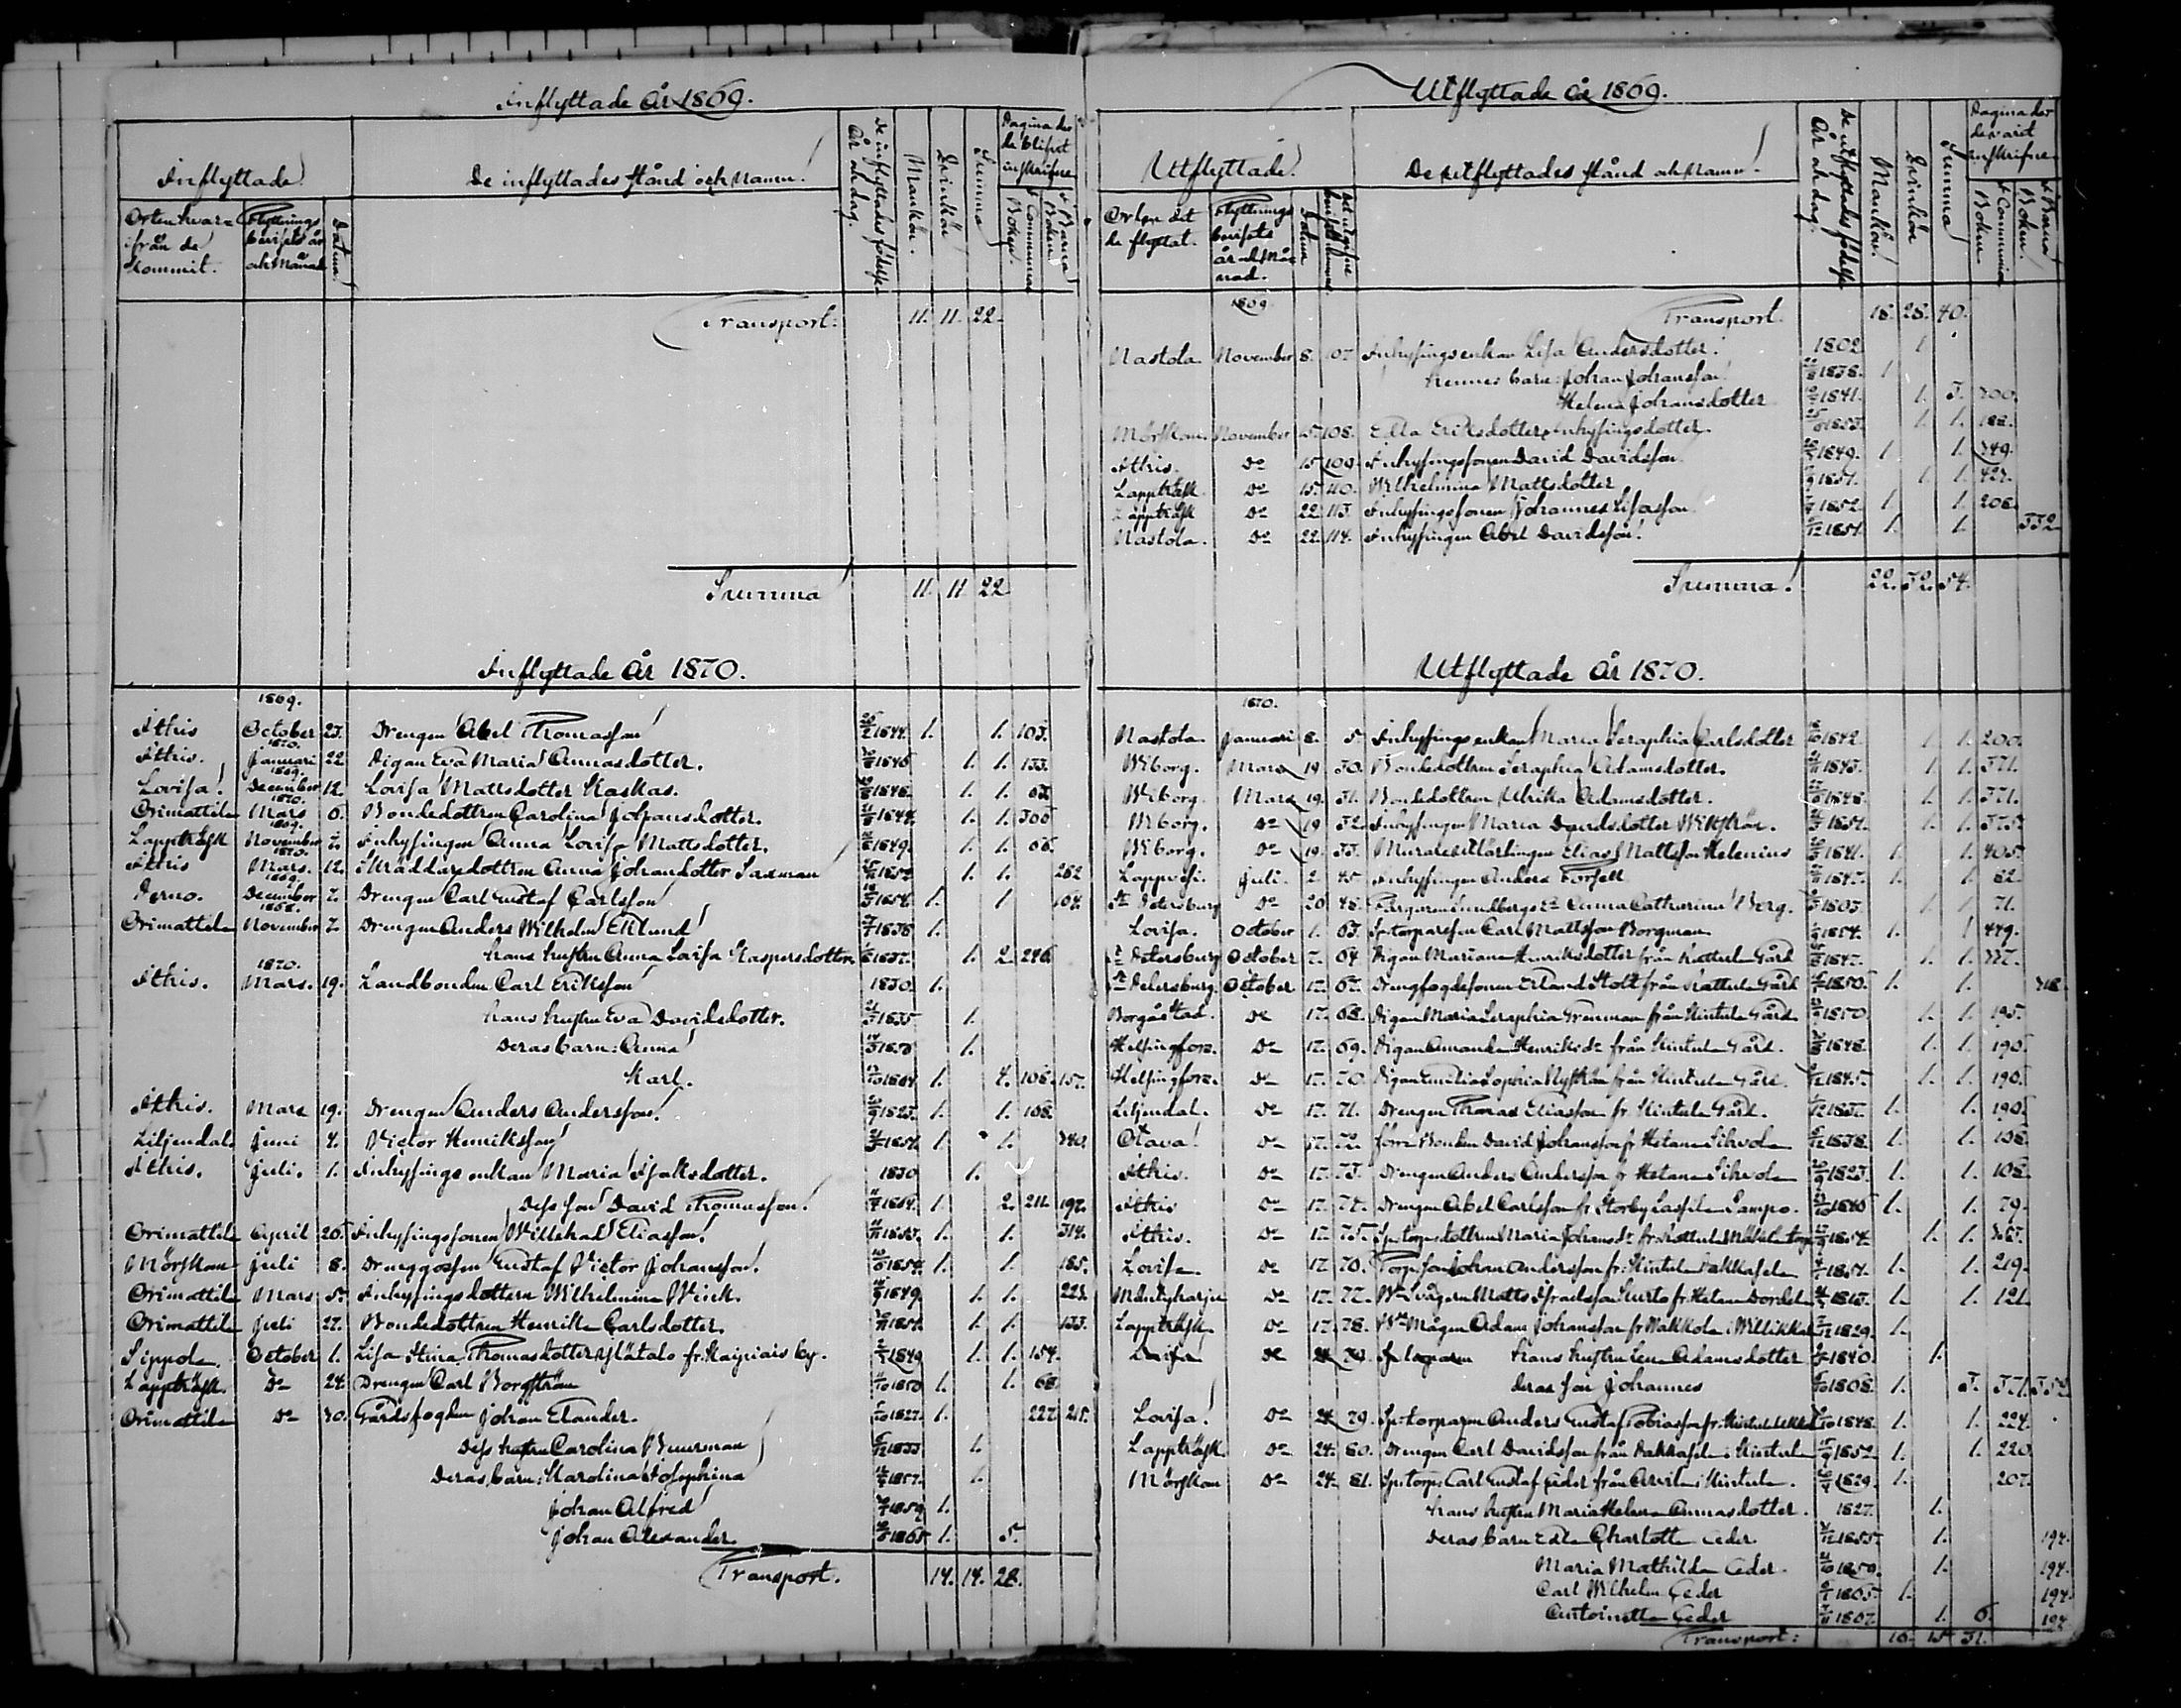 Inflyttade år 1869.
Inflyttade
De inflyttades stånd och Namn.
De inflyttades födelse år och dag.
Mankön.
Qvinkön
Summa
Pagina der de blifvit inskrifne
Orten hvarifrån de kommit.
Flyttnings betisets år och Månad
Datum
i Communion Boken.
i Barna Boken
Transport. 11. 11. 22.
Summa 11. 11. 22
Inflyttade år 1870.
1869.
Ithis October 23. Drengen Abel Thomasson 1844. 1. 1. 103.
1870.
Ithis. Januari 22. Pigan Eva Maria Annasdotter. 1846 1. 1. 133.
1869.
Lovisa December 12. Lovisa Mattsdotter Kaskas. 1848. 1. 1.
1870.
Orimattila Mars 6. Bondedottren Carolina Johansdotter. 1. 1.
1869.
Lappträsk November 7. Inhysingen Anna Lovisa Mattsdotter. 1849. 1. 1.
1870.
Ithis Mars. 12. Skräddaredottren Anna Johansdotter Saxman 1852 1. 1. 262
1869.
Perno. December 7. Drengen Carl Gustaf Carlsson 1. 1
1868.
Orimattila November 7. Drengen Anders Wilhelm Eklund 1836 1.
hans hustru Anna Lovisa Kaspersdotter 1837. 1. 2. 246
1870.
Ithis. Mars. 19. Landbonden Carl Eriksson 1830 1.
hans hustru Eva Davidsdotter. 1835 1.
Deras barn: Anna 1.
Karl. 1864 1. 4. 108. 157.
Ithis. Mars 19. Drengen Anders Andersson 1823. 1. 1. 108.
Liljendal. Juni 4. Victor Henriksson 1. 1. 340.
Ithis. Juli. 1. Inhysings enkan Maria Isaksdotter. 1830 1.
Dess son David Thomasson. 1864. 1. 2. 211. 197.
Orimattila April 20. Inhysingssonen Willehad Eliasson. 1853. 1. 1. 314.
Mörskom Juli 8. Drenggossen Gustaf Victor Johansson. 1854. 1. 1. 185.
Orimattila Mars 5. Inhysings dottern Wilhelmina Winck. 1849. 1. 1. 223.
Orimattila Juli 27. Bondedottren Henrika Carlsdotter. 1. 1. 133.
Sippola. October 1. Lisa Stina Thomasdotter Ylätalo fr. Kaipiais by. 1849 1. 1. 154.
Lappträsk. Do 24. Drengen Carl Borgström 1850 1. 1. 68.
Orimattila Do 30. Gårdsfogden Johan Elander. 1827. 1. 227. 215.
Dess hustru Carolina Buurman 1833 1.
Deras barn: Karolina Josephina 1857. 1.
Johan Alfred 1859 1.
Johan Alexander 1865 1. 5.
Transport. 14. 14. 28.
Utflyttade år 1869.
Uttflyttade.
De utflyttades stånd och Namn.
De utflyttades födelse år och dag.
Mankön.
Qvinkön
Summa
Pagina der de varit inskrifne
Orten dit de flyttat.
Flyttnings betisets år och Månad.
Datum
i Communion Boken.
i Barna Boken.
1869
Transport. 18. 28.
Nastola November 8. 107. Inhysingsenkan Lisa Andersdotter. 1802 1
hennes barn: Johan Johansson 1838. 1
Helena Johansdotter 1841. 1. 3. 300.
Mörskom. November 15. 108. Edla Eriksdotter, Inhysingsdotter. 1853. 1. 1. 188.
Ithis. Do 15. 109. Inhysingssonen David Davidsson 1849. 1. 1. 349.
Lappträsk. Do 15. 110. Wilhelmina Mattsdotter 1. 1. 427.
Lappträsk Do 22. 113. Inhysingssonen Johannes Lisasson 1852. 1. 1. 208.
Nastola. Do 22. 114. Inhysingen Abel Davidsson. 1. 1. 332
Summa. 22. 32. 54.
Utflyttade år 1870.
1870.
Nastola. Januari 8. 5. Inhysings enkan Maria Seraphia Carlsdotter 1842. 1. 1. 200.
Wiborg. Mars 19. 30. Bondedottren Seraphia Adamsdotter. 1843. 1. 1. 371.
Wiborg. Mars 19. 31. Bondedottren Ulrika Adamsdotter. 1848. 1. 1. 371.
Wiborg. Do 19. 32. Inhysingen Maria Davidsdotter Wikström. 1. 1. 375.
Wiborg. Do 19. 33. Murarelärlingen Elias Mattsson Helenius 1841. 1. 1. 405.
Lappvesi. Juli. 2. 45. Inhysingen Anders Forsell 1847. 1. 1. 82.
St Petersburg Do 20. 48. Anna Catharina Berg. 1803. 1 1 71.
Lovisa. October 1. 63. Sp. torparesonen Carl Mattsson Borgman 1854. 1. 1 449.
St Petersburg October 7. 64. Pigan Mariana Henriksdotter från Rattula Gård 1847. 1. 1.
St Petersburg. October 17. 67. Drengfogdesonen Erland Stolt från Rattula Gård 1850. 1. 1. 318.
Borgå stad. Do 17. 68. Pigan Maria Seraphia Grenman från Kintula Gård 1850. 1. 1. 195.
Helsingfors. Do 17. 69. Pigan Amanda Henriksdr från Kintula Gård. 1848. 1. 1. 190.
Helsingfors. Do 17. 70. Pigan Emilia Sophia Nyström från Kintula Gård. 1845. 1. 1. 190.
Liljendal. Do 17. 71. Drengen Thomas Eliasson fr. Kintula Gård. 1. 1. 190.
Otava. Do 17. 72. förre Bonden David Johansson fr. Hetana Sihvola 1838. 1. 1. 108.
Ithis. Do 17. 73. Drengen Anders Andersson fr Hetana Sihvola 1823. 1. 1. 108.
Ithis Do 17. 74. Drengen Abel Carlsson fr. Storby Lassila Lampo. 1. 1. 79.
Ithis. Do 17. 75. Sp. torpedottren Maria Johansdr fr. Rattula Mäkela torp 1854. 1. 1.
Lovisa. Do 17. 76. Torp. son Johan Andersson fr. Kintula Pakkasela 1. 1. 219.
Mäntyharju Do 17. 77. Matts Israelsson Kurto fr. Hetana 1813. 1. 1. 121.
Lappträsk. Do 17. 78. Adam Johansson fr. Wakkola i Willikkala 1829. 1.
Lovisa Do 24. 79. Sp. torparen hans hustru Lena Adamsdotter 1840. 1.
deras son Johannes 1868. 1. 3. 371. 352
Lovisa. Do 24. 79. Sp. torparen Anders Gustaf Tobiasson fr. Kintula 1848. 1. 1. 224.
Lappträsk Do 24. 80. Drengen Carl Davidsson från Pakkasela i Kintula 1852. 1. 1. 220.
Mörskom Do 24. 81. Sp. torp. Carl Gustaf Ceder från Arvila i Kintula. 1829. 1. 207.
hans hustru Maria Helena Annasdotter. 1827. 1.
deras barn Edla Charlotta Ceder. 1855. 1. 194.
Maria Mathilda Ceder. 1859. 1. 194.
Carl Wilhelm Ceder 1865. 1. 194.
Antoinetta Ceder 1867. 1. 6. 194
Transport: 16. 15. 31.